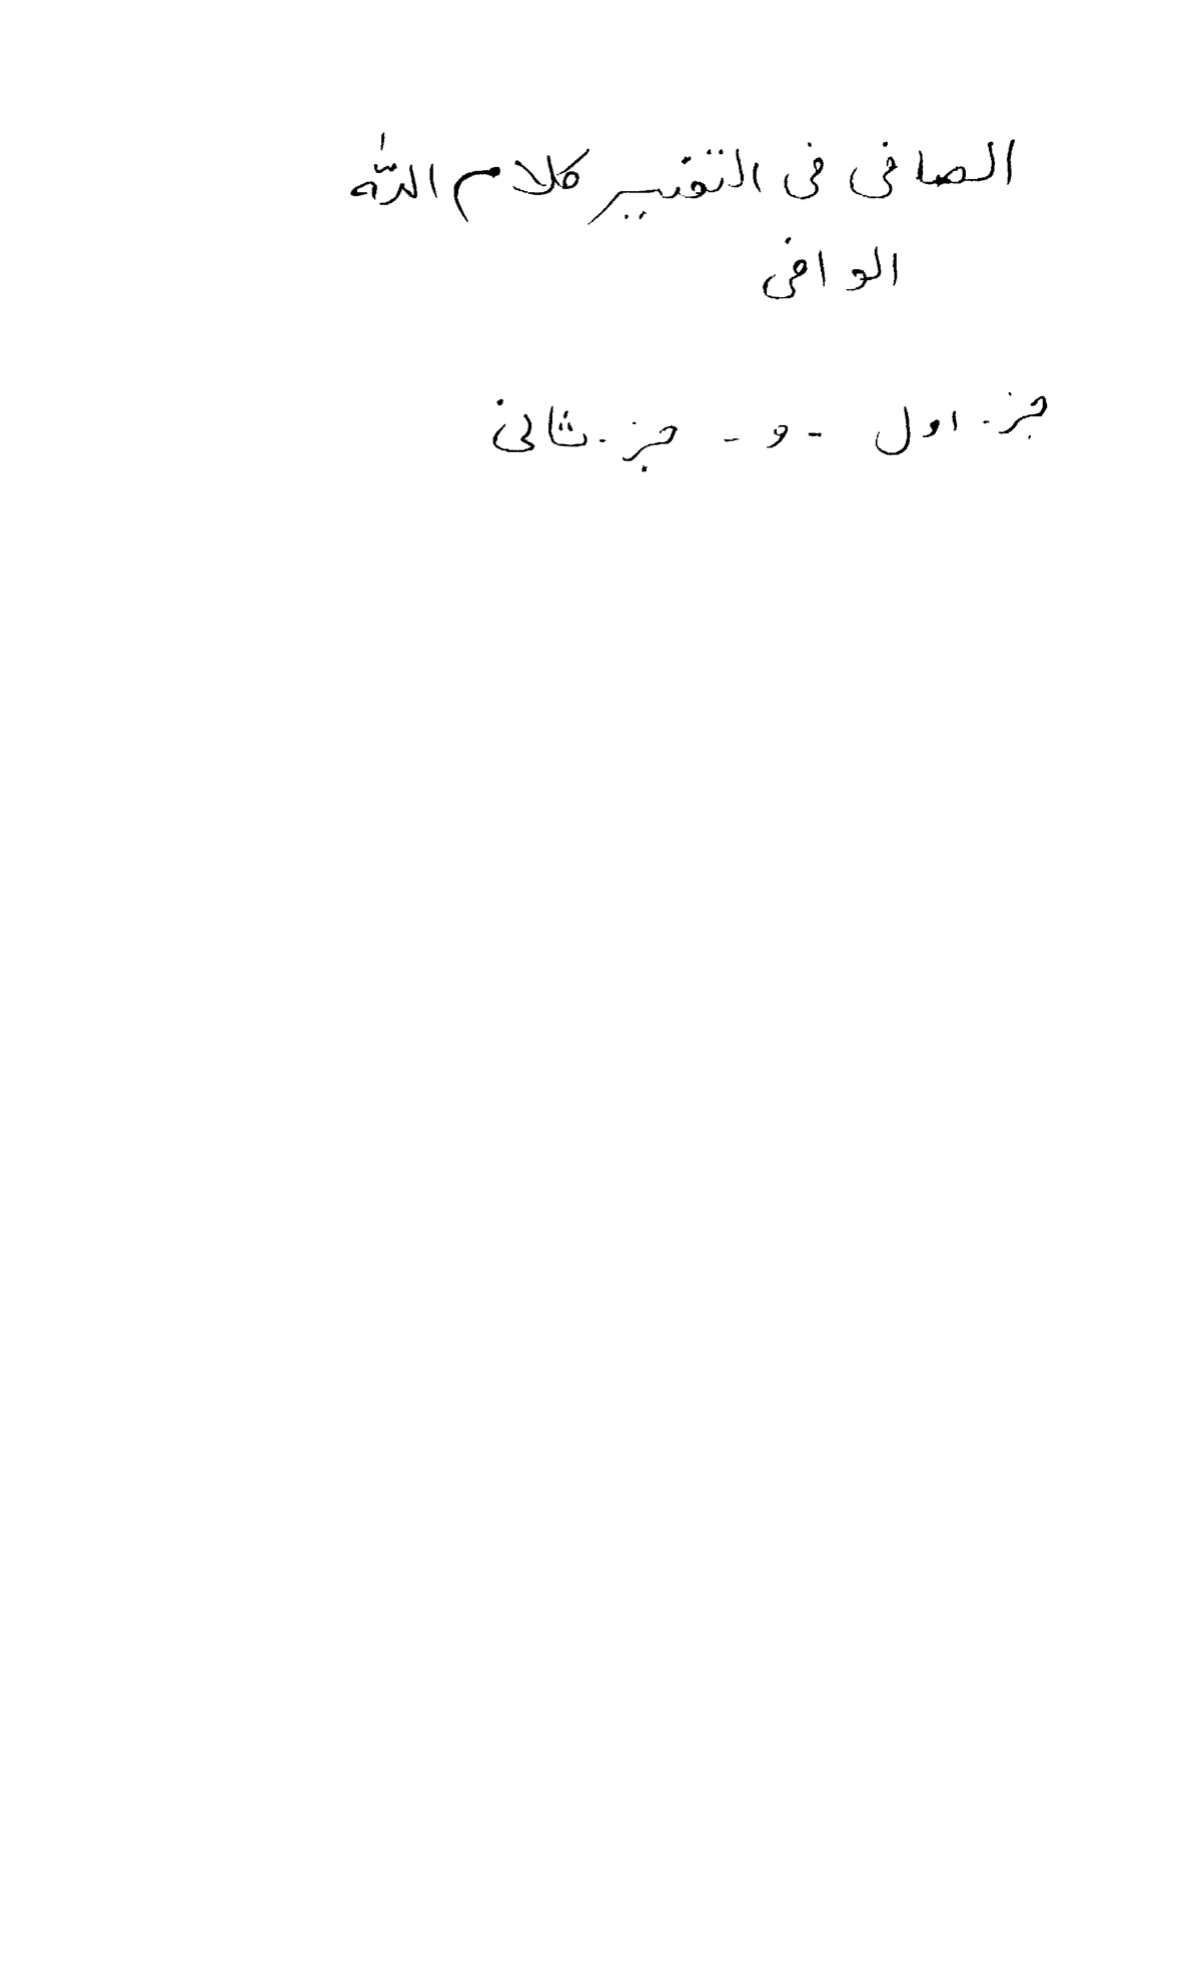 الصافی فی التفسیر کلام اللّٰه
الوافی
جزء اول - و - جزء ثانی